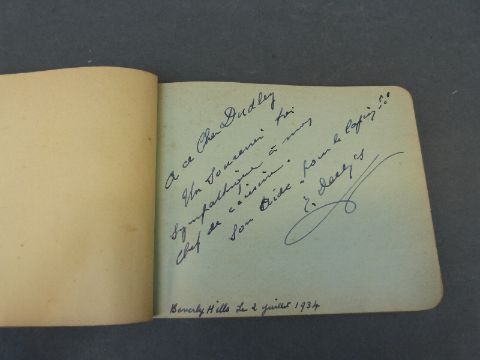 A ce Cher Dudley
Un Souvenir très
Sympathique à mon
Chef de cuisine.
Son Aide - pour le lapin!!
Beverly Hills Le 2 juillet 1934